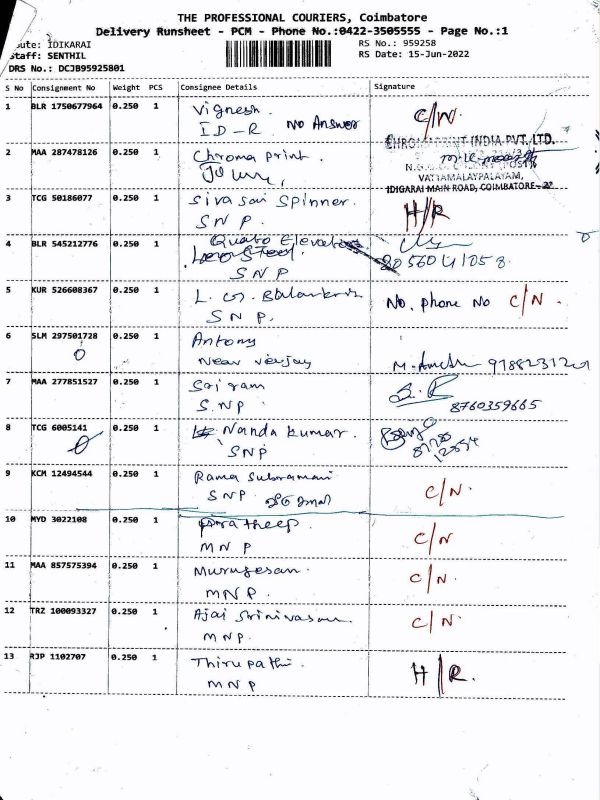 THE PROFESSIONAL COURIERS, Coimbatore
Delivery Runsheet - PCM - Phone No.:0422-3505555 - Page No.:1
oute: IDIKARAI
RS No.: 959258
Staff: SENTHIL
RS Date: 15-Jun-2022
DRS No.: DCJB95925801
S No Consignment No Weight PCS Consignee Details Signature
1 BLR 1750677964 0.250 1 Vignesh. C/N.
ID-R No Answer
CHROMAPRINT INDIA PVT. LTD.
2 MAA 287478126 0.250 1 Chroma print.
VATTAMALAYPALAYAM,
IDIGARAI MAIN ROAD, COIMBATORE-22
3 TCG 50186077 0.250 1 Sivasai Spinner. H/R
SNP.
4 BLR 545212776 0.250 1 Quabo Elevators
SNP
5 KUR 526608367 0.250 1 L. G. Balankrish No. phone No C/N.
SNP.
6 SLM 297501728 0.250 1 Antony
0 Near Veejay
7 MAA 277851527 0.250 1 Sri ram
S.NP. 8760359665
8 TCG 6005141 0.250 1 Nanda kumar.
SNP
9 KCM 12494544 0.250 1 Rama Subramani C/N.
SNP
10 MYD 3022108 0.250 1 Piratheep. C/N
MNP
11 MAA 857575394 0.250 1 Murugesan. C/N.
MNP.
12 TRZ 100093327 0.250 1 Ajai Srinivasan. C/N.
MNP.
13 RJP 1102707 0.250 1 Thirupathi. H/R.
MNP